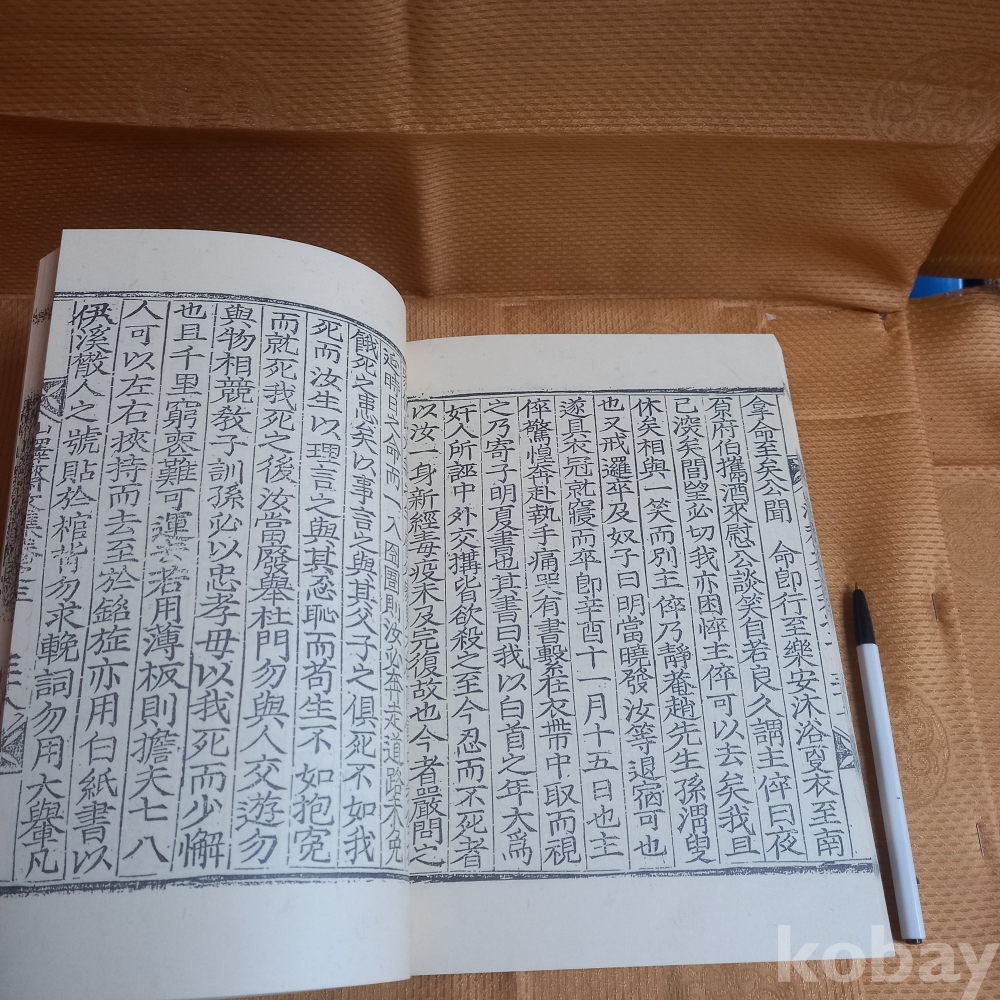 拿命至矣公聞 命卽行至樂安沐浴更衣至南
京府伯攜酒來慰公談笑自若良久謂主倅曰夜
已深矣間望必切我亦困悴主倅可以去矣我且
休矣相與一笑而別主倅乃靜菴趙先生孫渭叟
也又戒邏卒及奴子曰明當曉發汝等退宿可也
遂具衣冠就寢而卒卽辛酉十一月十五日也主
倅驚惶奔赴執手痛哭有書繫在衣帶中取而視
之乃寄子明夏書也其書曰我以白首之年大爲
奸人所誣中外交搆皆欲殺之至今忍而不死者
以汝一身新經毒疫未及完復故也今者嚴問之
命而一入囹圄則汝必奔走道路未免
餓死之患矣以事言之與其父子之俱死不如我
死而汝生以理言之與其忍恥而苟生不如抱冤
而就死我死之後汝當廢舉杜門勿與人交遊勿
與物相競教子訓孫必以忠孝毋以我死而少懈
也且千里窮喪難可運去若用薄板則擔夫七八
人可以左右挾持而去至於銘旌亦用白紙書以
伊溪散人之號貼於棺背勿求輓詞勿用大轝凡
kobay